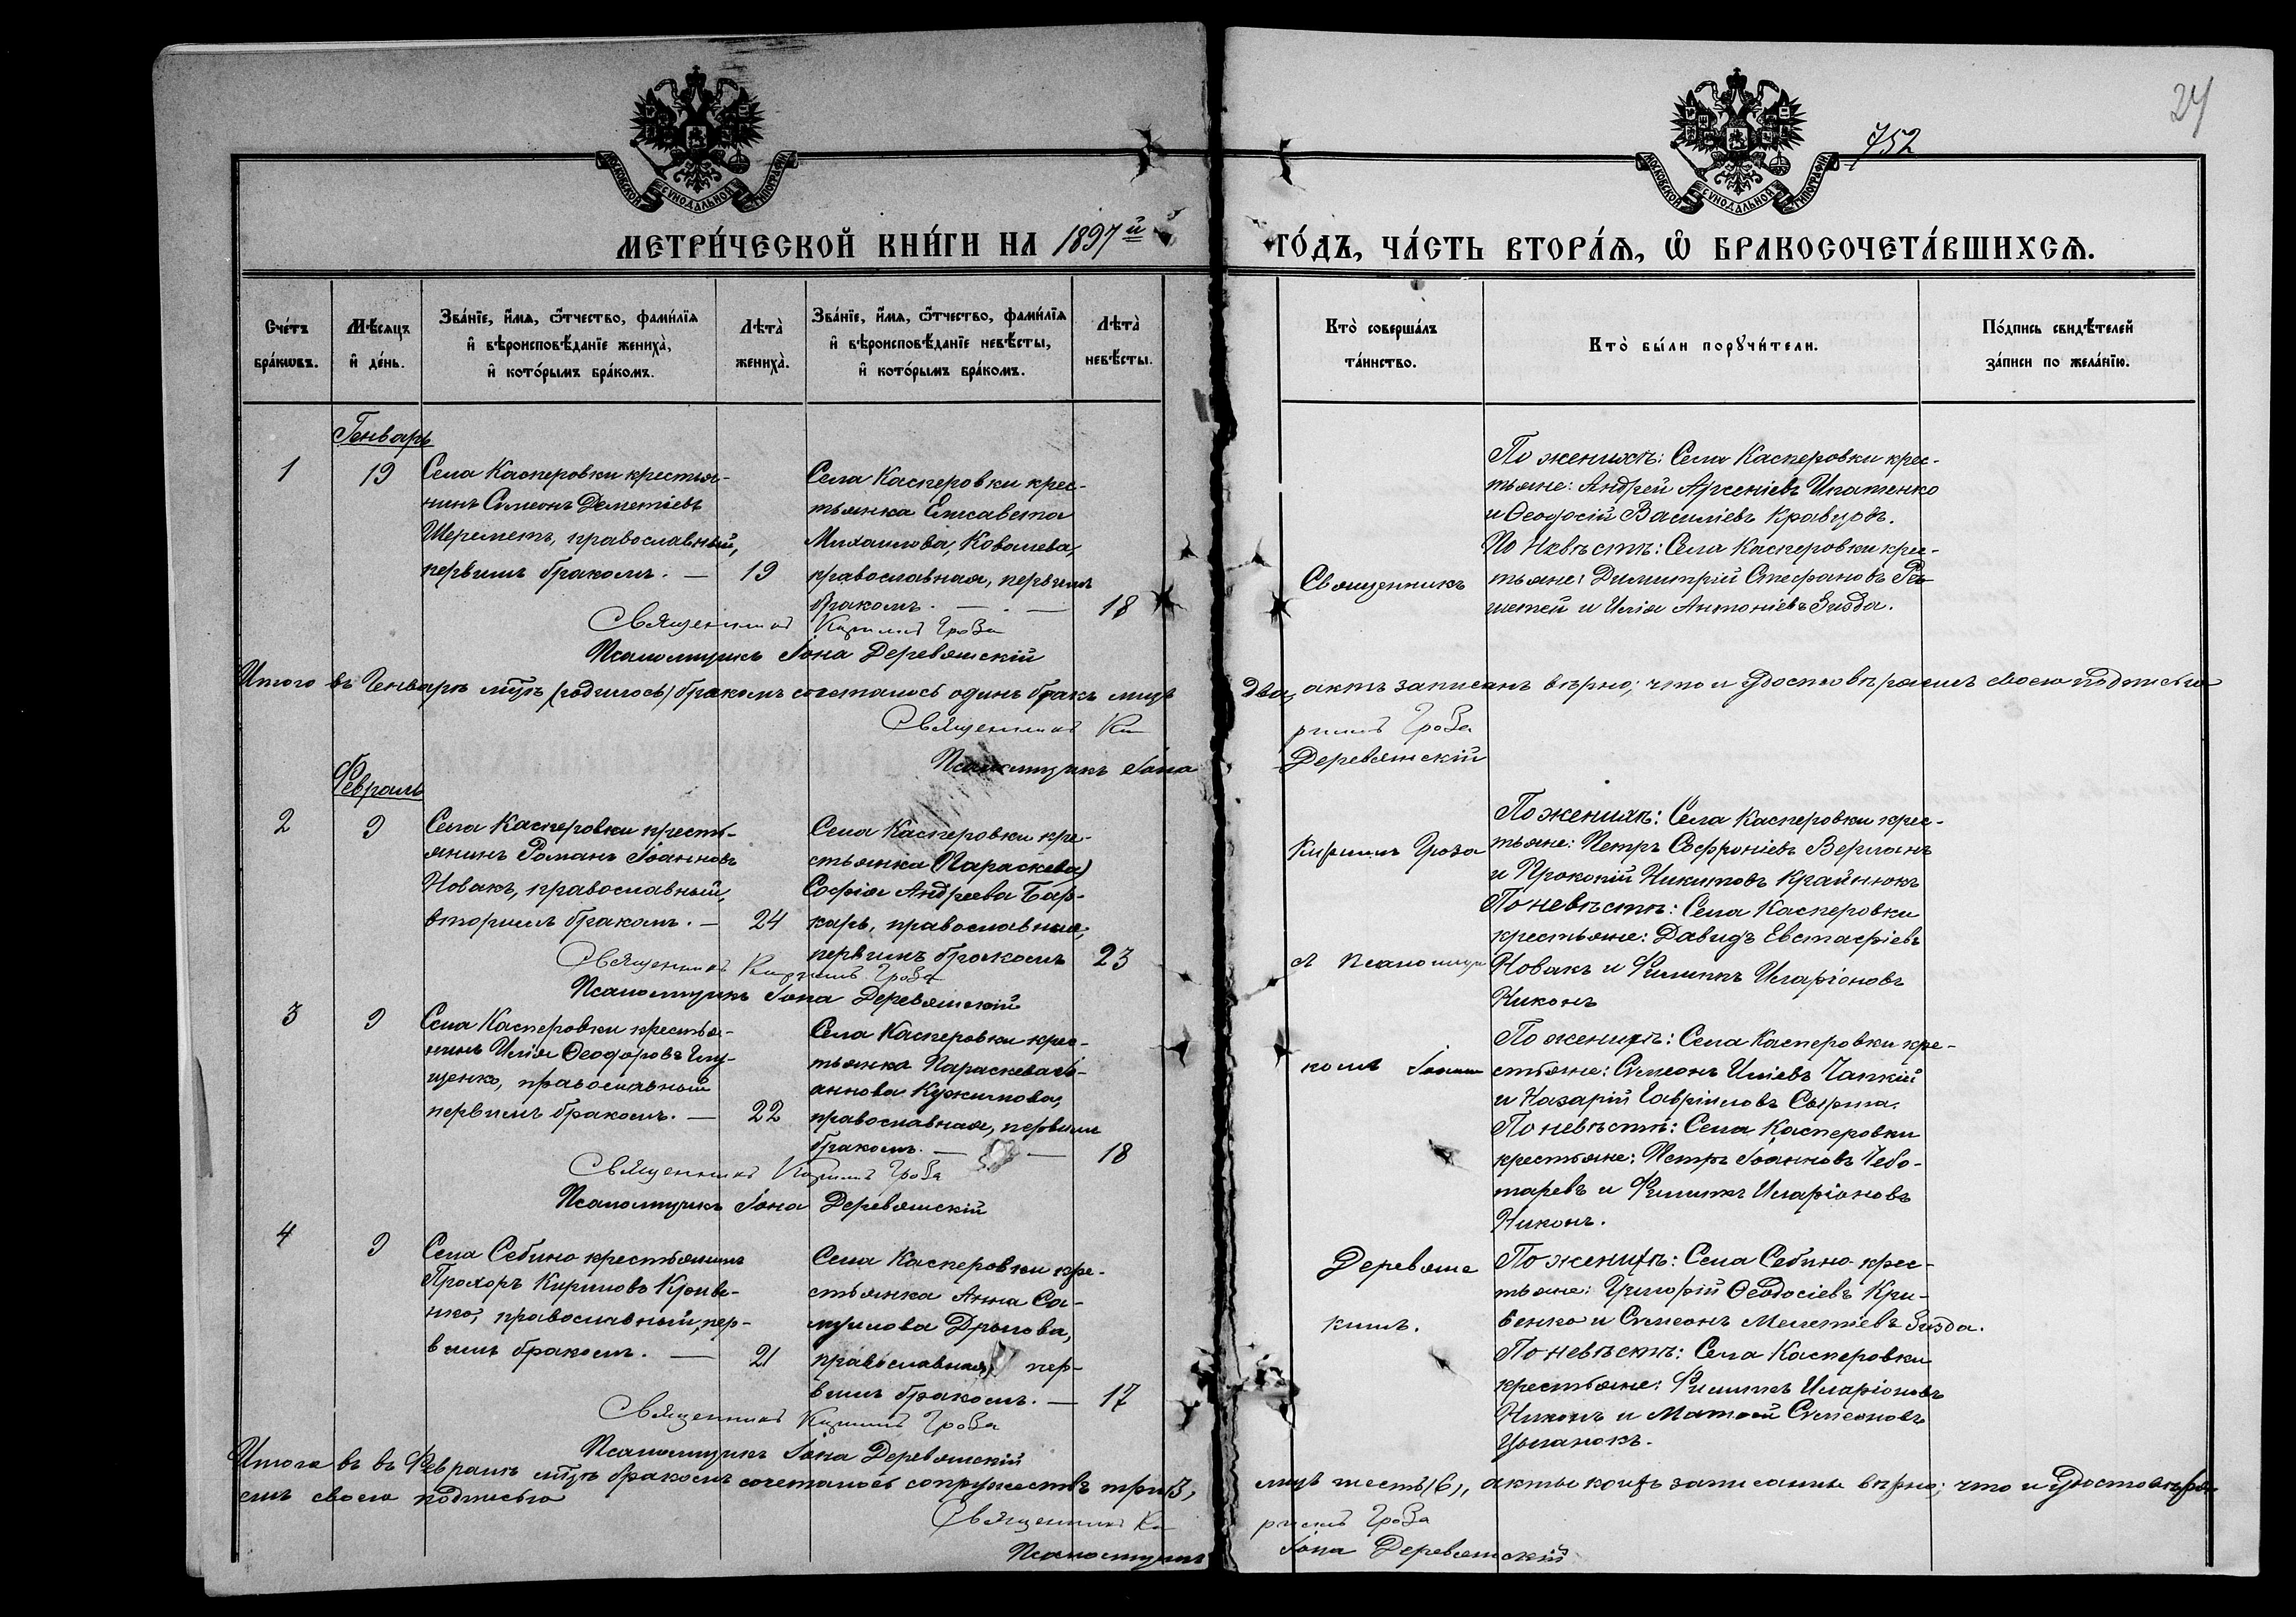 24
752
МОСКОВСКОЙ СѴНОДАЛЬНОЙ ТИПОГРАФІИ
МОСКОВСКОЙ СѴНОДАЛЬНОЙ ТИПОГРАФІИ
МЕТРИ́ЧЕСКОЙ КНИ́ГИ НА 1897й ГО́ДЪ, ЧА́СТЬ ВТОРА́Я, Ѽ БРАКОСОЧЕТА́ВШИХСѦ.
Сче́тъ бра́кѡвъ.
Мѣ́сяцъ и҆ де́нь.
Зва́нїе, и҆́мѧ, ѻ҆́тчество, фами́лїѧ
и҆ вѣроисповѣ́данїе жениха̀,
и҆ кото́рымъ бра́комъ.
Лѣта̀ жениха̀.
Зва́нїе, и҆́мѧ, ѻ҆́тчество, фами́лїѧ
и҆ вѣроисповѣ́данїе невѣ́сты,
и҆ кото́рымъ бра́комъ.
Лѣта̀ невѣ́сты.
Кто̀ соверша́лъ та́инство.
Кто̀ бы́ли порꙋчи́тели.
По́дпись свидѣ́телей за́писи по жела́нїю.
Генварь
1
19
Села Касперовки крестья-
нинъ Симеонъ Дементіевъ
Шереметъ, православный,
первымъ бракомъ. — 19
Села Касперовки крес-
тьянка Елисавета
Михаилова, Ковалева,
православная, первымъ
бракомъ. — . — 18
По женихѣ: Села Касперовки крес-
тьяне: Андрей Арсеніевъ Ипатенко
и Ѳеодосій Василіевъ Кравцовъ.
По Невѣстѣ: Села Касперовки крес-
тьяне: Димитрій Стефановъ Ре-
шетей и Илія Антоніевъ Зизда.
Священникъ
Священникъ Кириллъ Гроза
Псаломщикъ Іона Деревянскій
Итого въ Генварѣ мцѣ (родилось) бракомъ сочеталось одинъ бракъ лицъ два, актъ записанъ вѣрно; что и удостовѣряемъ своею подписью
Священникъ Кириллъ Гроза
Псаломщикъ Іона Деревянскій
Февраль
2
9
Села Касперовки кресть-
янинъ Романъ Іоанновъ
Новакъ, православный,
вторымъ бракомъ. — 24
Села Касперовки кре-
стьянка (Параскева)
Софія Андреева Бар-
карь, православная,
первымъ бракомъ 23
Кириллъ Гроза
По женихѣ: Села Касперовки крес-
тьяне: Петръ Софроніевъ Верланъ
и Прокопій Никитовъ Крайнюкъ
По невѣстѣ: Села Касперовки
крестьяне: Давидъ Евстафіевъ
Новакъ и Филиппъ Иларіоновъ
Никонъ
Священникъ Кириллъ Гроза
Псаломщикъ Іона Деревянскій
3
9
Села Касперовки крестья-
нинъ Илія Ѳеодоровъ Глу-
щенко, православный
первымъ бракомъ. — 22
Села Касперовки крес-
тьянка Параскева Іо-
аннова
православная, первымъ
бракомъ. — — 18
с псаломщи
комъ Іоною
По женихѣ: Села Касперовки кре-
стьяне: Симеонъ Иліевъ Чапкій
и Назарій Гавріиловъ Сырма.
По невѣстѣ: Села Касперовки
крестьяне: Петръ Іоанновъ Чебо-
таревъ и Филиппъ Иларіоновъ
Никонъ.
Священникъ Кириллъ Гроза
Псаломщикъ Іона Деревянскій
4
9
Села Себино крестьянинъ
Прохоръ Кириловъ Криве-
нко, православный, пер-
вымъ бракомъ. — 21
Села Касперовки кре-
стьянка Анна Са-
муилова Дромова,
православная, пер-
вымъ бракомъ. — 17
Деревянс
кимъ.
По женихѣ: Села Себино крес-
тьяне: Григорій Ѳеодосіевъ Кри-
венко и Симеонъ Мелетіевъ Зизда.
По невѣстѣ: Села Касперовки
крестьяне: Филиппъ Иларіоновъ
Никонъ и Матѳей Симеоновъ
Цыганокъ.
Священникъ Кириллъ Гроза
Псаломщикъ Іона Деревянскій
Итого въ въ Февралѣ мцѣ бракомъ сочеталось супружествъ три /3, лицъ шесть /6/, акты коихъ записаны вѣрно; что и удостовѣря-
емъ своею подписью
Священникъ Кириллъ Гроза
Псаломщикъ Іона Деревянскій